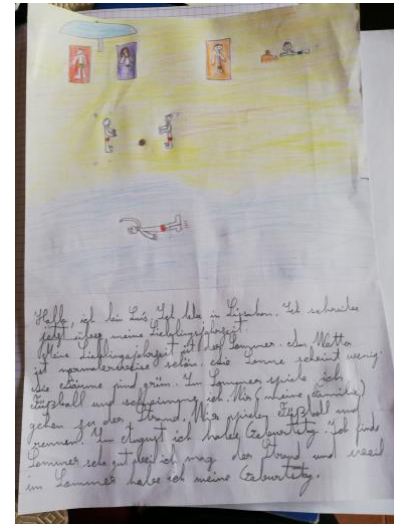 Hallo, ich bin Luís. Ich lebe in Lissabon. Ich schreibe
jetzt über meine Lieblingsjahrezeit.
Meine Lieblingsjahrezeit ist der Sommer. das Wetter
ist normalerweise schön. die Sonne scheint wenig.
die Bäume sind grün. Im Sommer spiele ich
Fußball und schwimme ich. Wir (meine Familie)
gehen zu der Strand. Wir spielen Fußball und
rennen. Im August ich habe Geburtstag. Ich finde
Sommer sehr gut weil ich mag der Strand und weil
im Sommer habe ich meine Geburtstag.